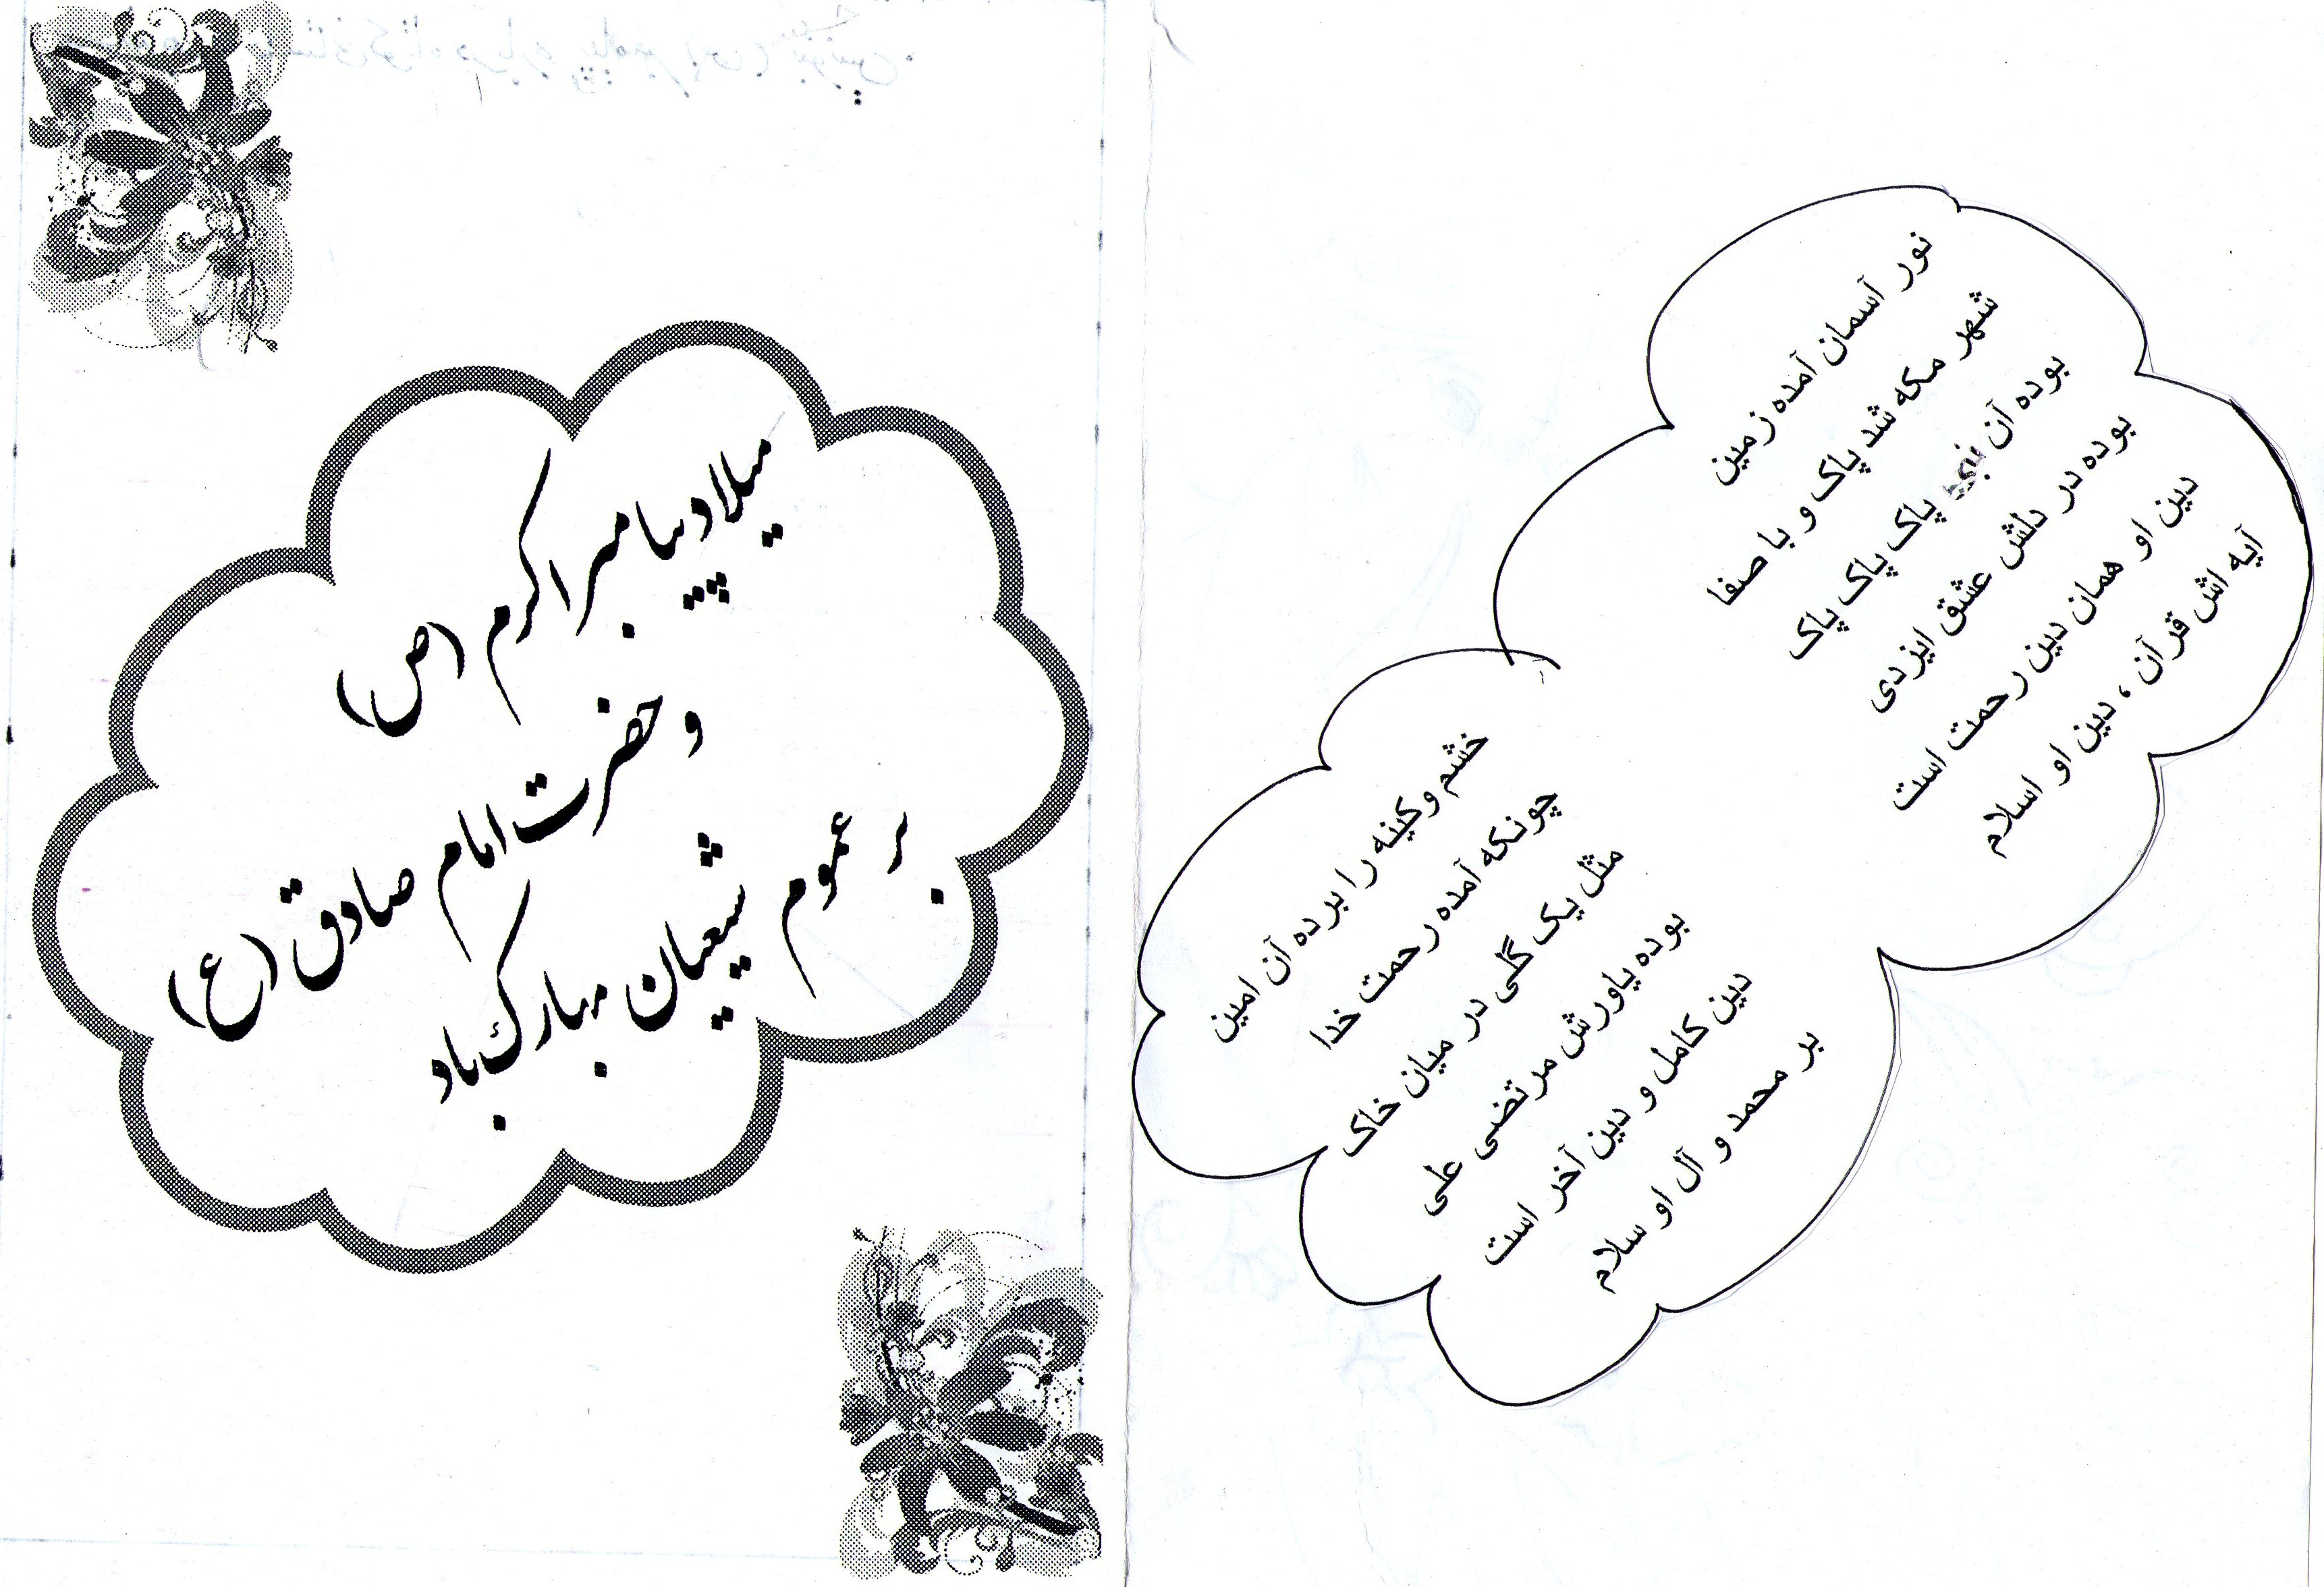 نور آسمان آمده زمین
شهر مکه شد پاک و با صفا
بوده آن نبی پاک پاک پاک
بوده در دلش عشق ایزدی
دین او همان دین رحمت است
آیه اش قرآن ، دین او اسلام
خشم و کینه را برده آن امین
چونکه آمده رحمت خدا
مثل یک گلی در میان خاک
بوده یاورش مرتضی علی
دین کامل و دین آخر است
بر محمد و آل او سلام
میلاد پیامبر اکرم (ص)
و حضرت امام صادق (ع)
بر عموم شیعیان مبارک باد